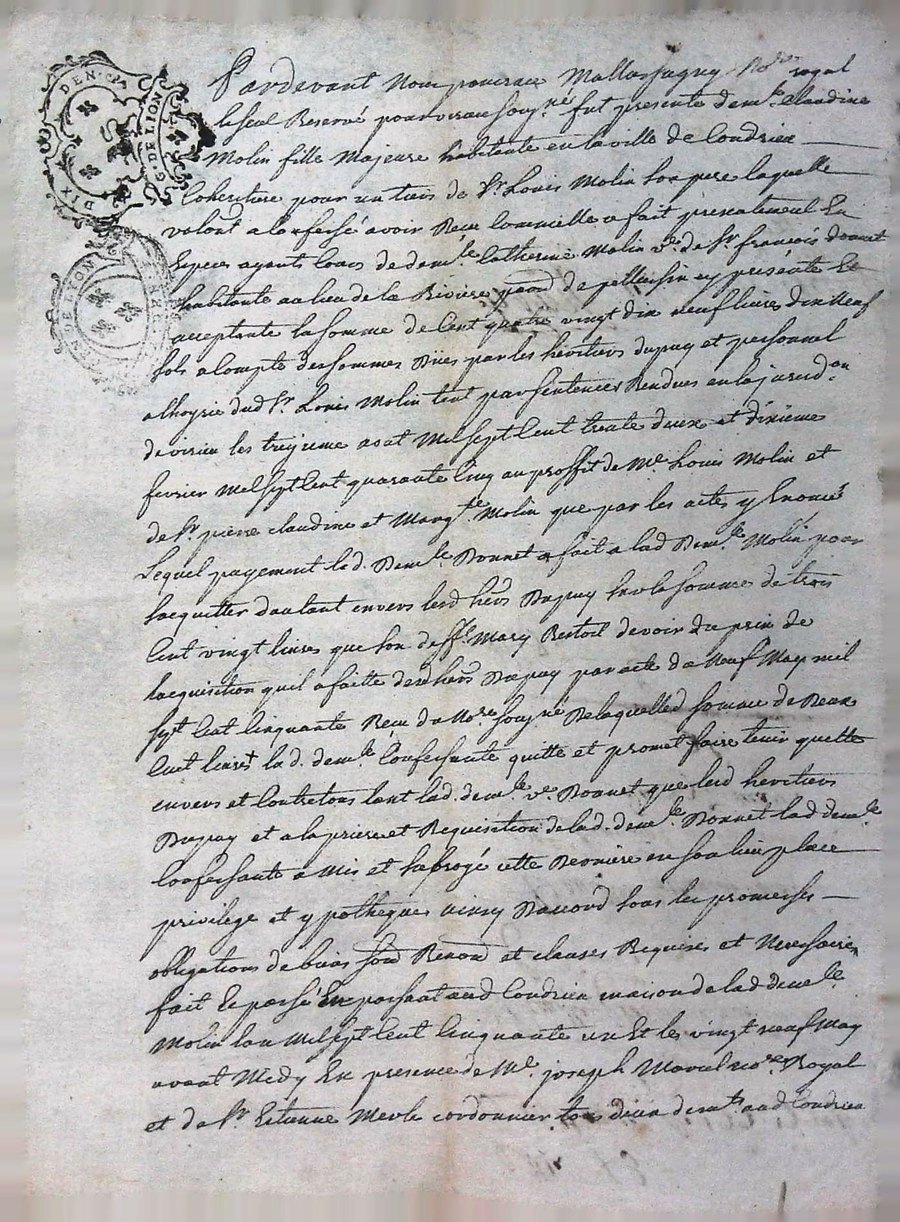 DIX DEN. CPR
G. DE LION
GEN. DE LYON
Pardevant Nous Mallassagny No.re royal
le seul Reservé pour Soug.né fut presente dem.le Claudine
Molin fille Majeure habitante en la ville de Condrieu
Coheritiere pour un tiers de S.r Louis Molin son pere laquelle
volont a Confessé avoir Receu comme elle a fait presentement En
Especes ayants Cours de dem.lle Catherine Molin v.e de S.r françois donnet
habitante au lieu de la Riviere de pellussin cy presente Et
acceptante la somme de Cent quatre vingt dix neuf livres dix Neuf
sols a Compte des sommes Düës par les héritiers dupuy et personnel
a lhoyrie dud S.r Louis Molin tent par sentences Rendues en la jurisd.on
de virieu les treizieme aoat Mil sept Cent trente deux et dixieme
fevrier Mil sept Cent quarante Cinq au proffit de M.e Louis Molin et
de S.r pierre claudine et Marg.te Molin que par les actes y Enoncé
Lequel payement lad. Dem.le Donnet a fait a lad Dem.le Molin pour
sacquitter dautant envers lesd hers Dupuy sur la somme de trois
Cent vingt livres que son deff.t Mary Restoit devoir du prix de
lacquisition quil a faitte desd hers Dupuy par acte du Neuf May mil
sept Cent Cinquante Receu du No.re sougné De laquelled somme de Deux
Cent livres lad. dem.le Confessante quitte et promet faire tenir quitte
envers et Contre tous tant lad. dem.le v.e Donnet que lesd heritiers
Dupuy et a la priere et Requisition de lad. dem.le Donnet lad dem.le
Confessante a Mis et subrogé cette Derniere en son lieu place
privilege et ypotheques ainsy Daccord sous les promesses
obligations de biens Renond et clauses Requises et Necessaires
fait Et passé En passant aud Condrieu maison de lad dem.le
Molin lan Mil sept Cent Cinquante un Et le vingt neuf May
avant Midy En presence de M.e joseph Morel no.re Royal
et de S.r Estienne Merle cordonnier tous deux dem.ts aud Condrieu